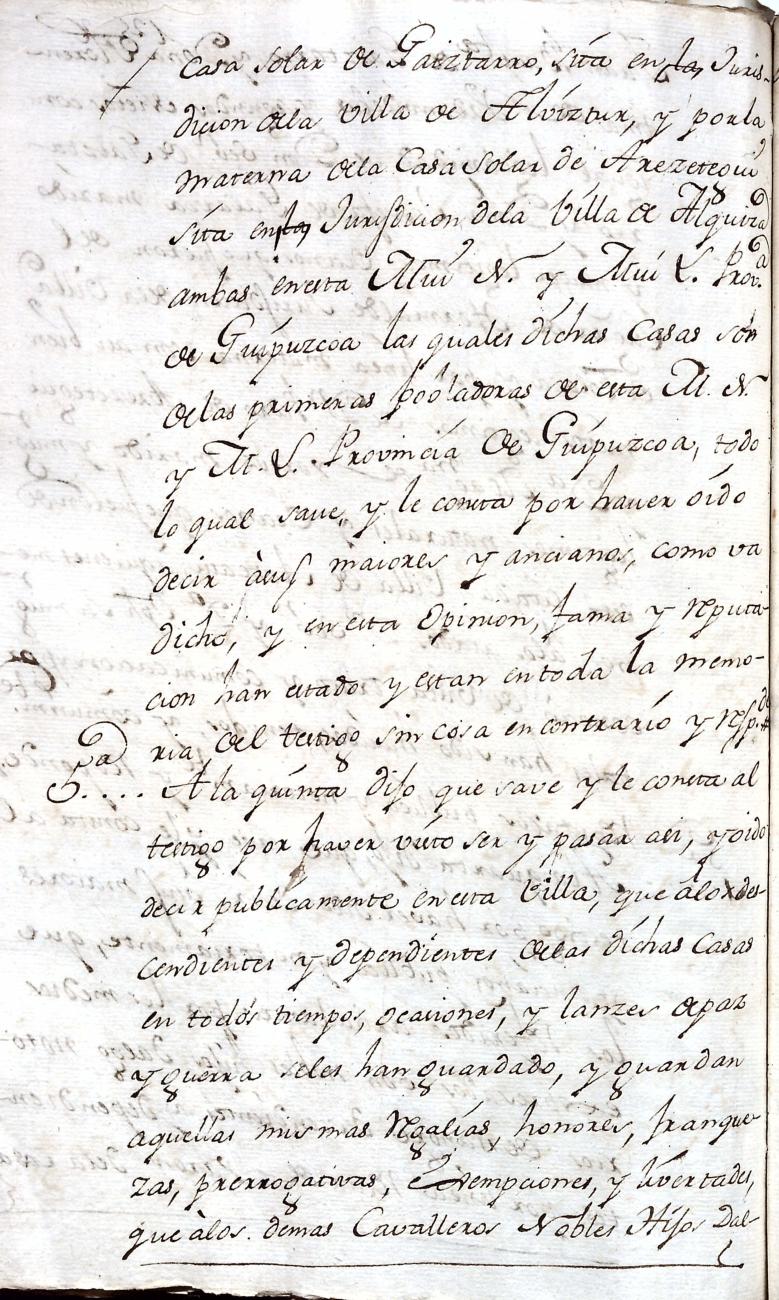 Casa solar de Gaiztarro, sita en la Juris-
dicion dela Villa de Alviztur, y por la
materna dela Casa Solar de Arezetegui
sita en la Jurisdicion dela Villa de Alquiza
ambas en esta Mui N. y Mui L. Prov.ª
de Guipuzcoa las quales dichas Casas són
delas primeras Pobladoras de esta M. N.
y M. L. Provincia de Guipuzcoa, todo
lo qual save, y le consta por haver oído
decir àsus maiores y ancianos, como va
dicho, y en esta Opinion, fama y reputa-
cion han estado y estan en toda la memo-
ria del testigo sin cosa en contrario y resp.de
5.ª .... A la quinta dijo que save y le consta al
testigo por haver visto ser y pasar asi, y oido
decir publicamente en esta Villa, que álos des-
cendientes y dependientes delas dichas Casas
en todos tiempos, ocasiones, y lanzes de paz
y guerra seles han guardado, y guardan
aquellas mismas Regalías, honores, franque-
zas, prerrogativas, Exempciones, y livertades,
que àlos demas Cavalleros Nobles Hijos Dal-